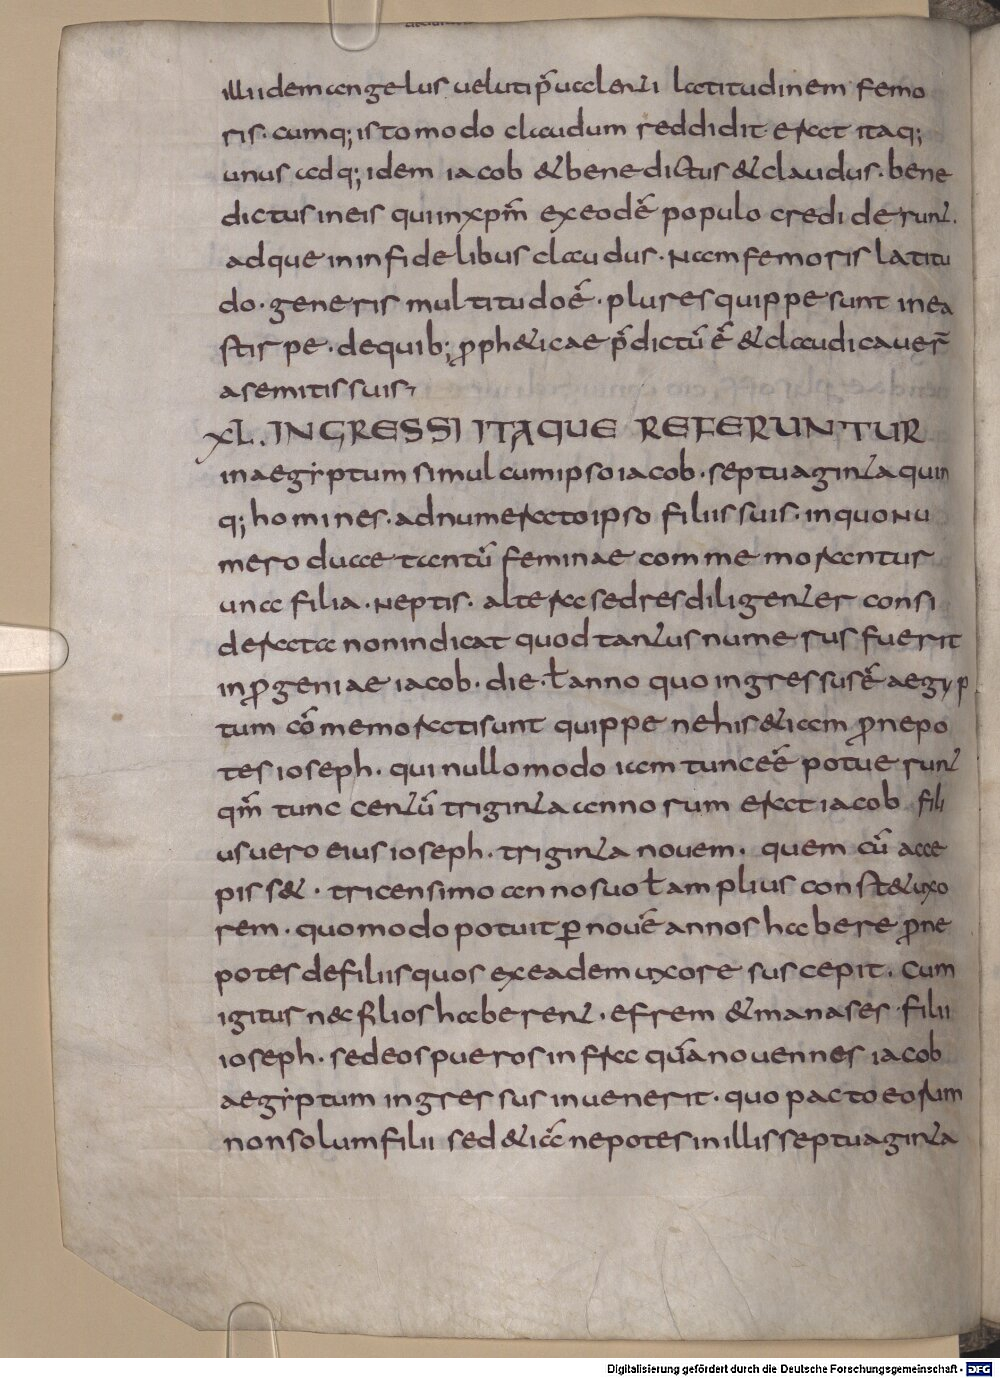 illi idem angelus ueluti p̄ualenti latitudinem femo
ris. cumq; isto modo claudum reddidit erat itaq;
unus adq; idem iacob & benedictus & claudus. bene
dictus in eis qui in xpm̄ ex eodē populo crediderunt.
adque in infidelibus claudus. Nam femoris latitu
do. generis multitudo ē. plures quippe sunt in ea
stirpe. de quib; p̱ph&icae p̄dictū ē & claudicauer̄
a semitis suis,
XL. INGRESSI ITAQUE REFERUNTUR
in aegẏptum simul cum ipso iacob. septuaginta quin
q; homines. adnumerato ipso filiis suis. in quo Nu
mero duae tantū feminae commemorantur
una filia. Neptis. altera sed res diligenter consi
derata non indicat quod tantus numerus fuerit
in p̱geniae iacob. die. ł anno quo ingressus ē aegyp
tum cōmemorati sunt quippe ne his &iam p̱nepo
tes ioseph. qui nullo modo iam tunc eē potuerunt
qm̄ tunc centū triginta annorum erat iacob fili
us uero eius ioseph. triginta nouem. quem cū acce
piss&. tricensimo anno suo ł amplius const& uxo
rem. quomodo potuit ꝑ nouē annos habere p̱ne
potes de filiis quos ex eadem uxore suscepit. Cum
igitur nec filios haberent. efrem & manases. filii
ioseph. sed eos pueros infra quā nouennes iacob
aegẏptum ingressus inuenerit. quo pacto eorum
non solum filii sed &iā nepotes in illis septuaginta
Digitalisierung gefördert durch die Deutsche Forschungsgemeinschaft - DFG